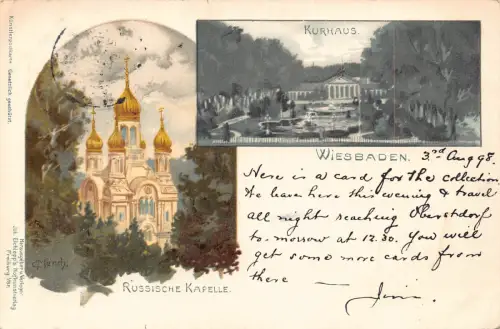 Künstlerpostkarte. Gesetzlich geschützt.
KURHAUS.
WIESBADEN.
3rd Aug 98.
Here is a card for the collection
We leave here this evening & travel
all night reaching Oberstdorf
to-morrow at 12.30. You will
get some more cards from
there —
Jim.
C. Münch.
RUSSISCHE KAPELLE.
Jos. Elchlepp's Hofkunstverlag
Freiburg i/Br.